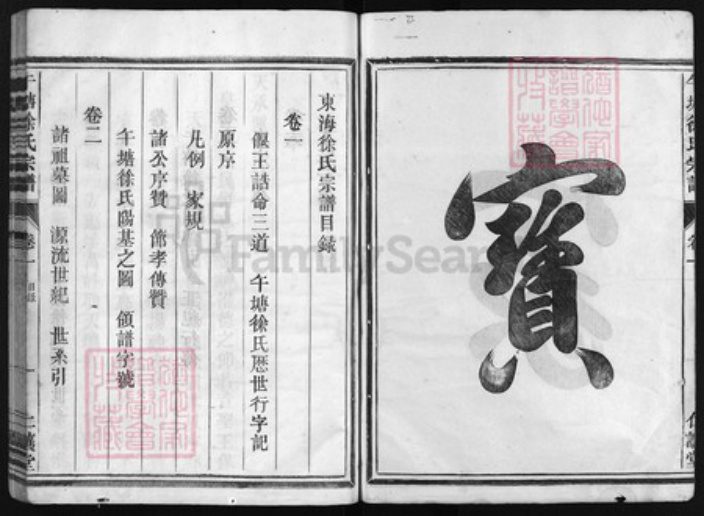 寶
東海徐氏宗譜目錄
卷一
偃王誥命三道 午塘徐氏歷世行字記
原序
凡例 家規
諸公序贊 節孝傳贊
午塘徐氏陽基之圖 領譜字號
卷二
諸祖墓圖 源流世紀 世系引
午塘徐氏宗譜 卷一 目錄
FamilySearch